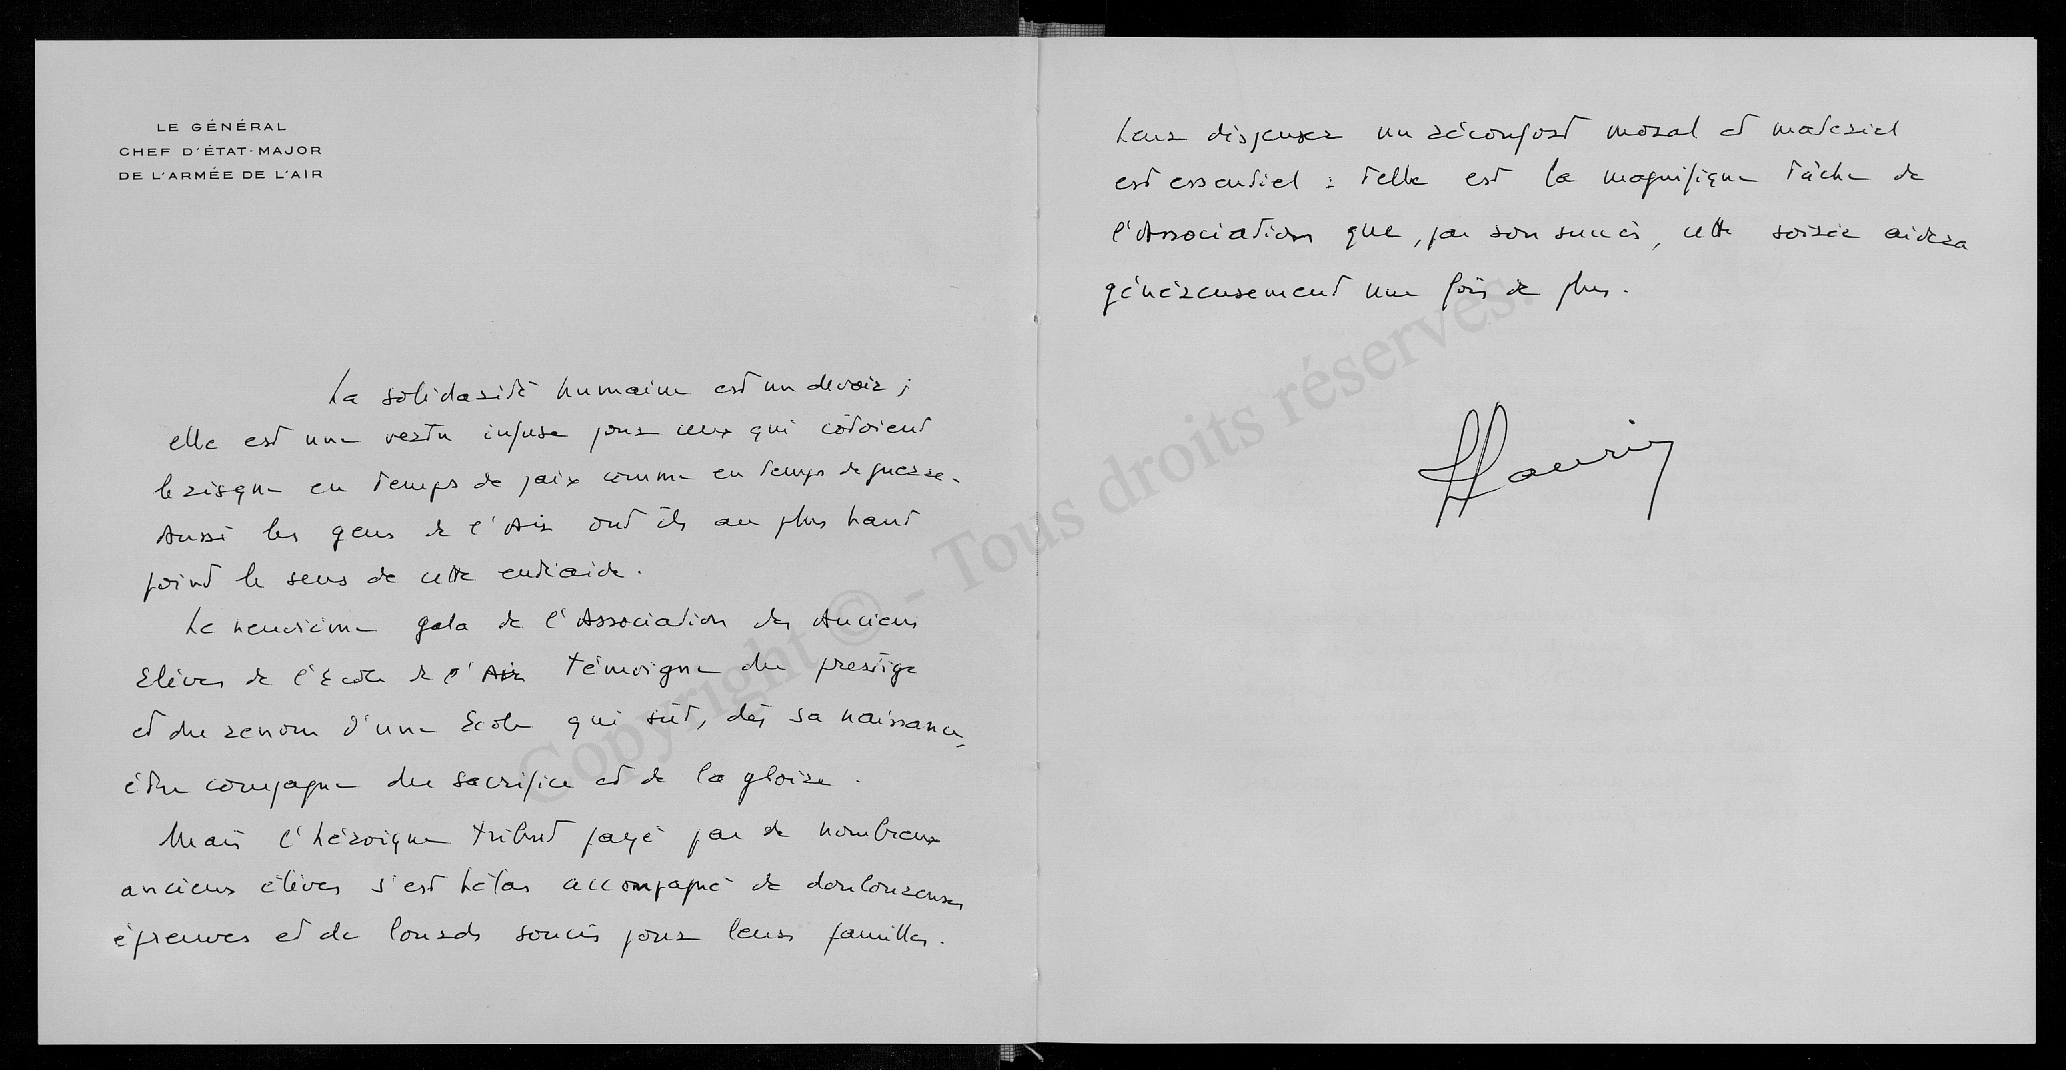 LE GÉNÉRAL
CHEF D'ÉTAT-MAJOR
DE L'ARMÉE DE L'AIR
La solidarité humaine est un devoir ;
elle est une vertu infuse pour ceux qui côtoient
le risque en temps de paix comme en temps de guerre.
Aussi les gens de l'Air ont ils au plus haut
point le sens de cette entraide.
Le neuvième gala de l'Association des Anciens
Elèves de l'Ecole de l'Air témoigne du prestige
et du renom d'une Ecole qui sût, dès sa naissance,
être compagne du sacrifice et de la gloire.
Mais l'héroïque tribut payé par de nombreux
anciens élèves s'est hélas accompagné de douloureuses
épreuves et de lourds soucis pour leurs familles.
Leur dispenser un réconfort moral et matériel
est essentiel : telle est la magnifique tâche de
l'Association que, par son succès, cette soirée aidera
généreusement une fois de plus.
Copyright © - Tous droits réservés.